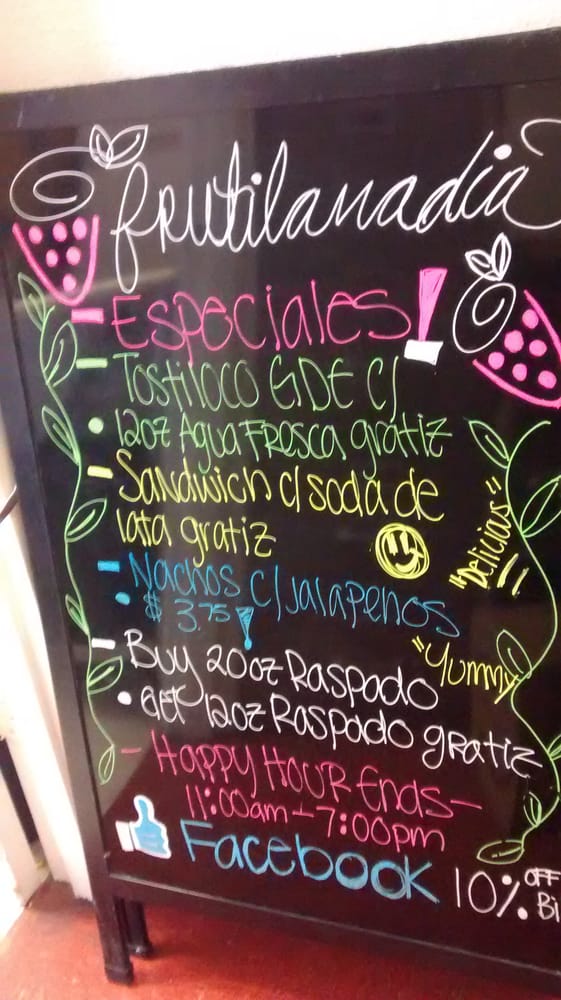 frutilanadia
- Especiales!
- Tostiloco GDE c/
• 12oz Agua Fresca gratiz
- Sandwich c/soda de
lata gratiz
"Delicias"!!
- Nachos c/jalapenos
• $3.75!
"Yummy
- Buy 20oz Raspado
• GET 12oz Raspado gratiz
- Happy Hour Ends -
11:00am - 7:00pm
Facebook
10% OFF
Bi